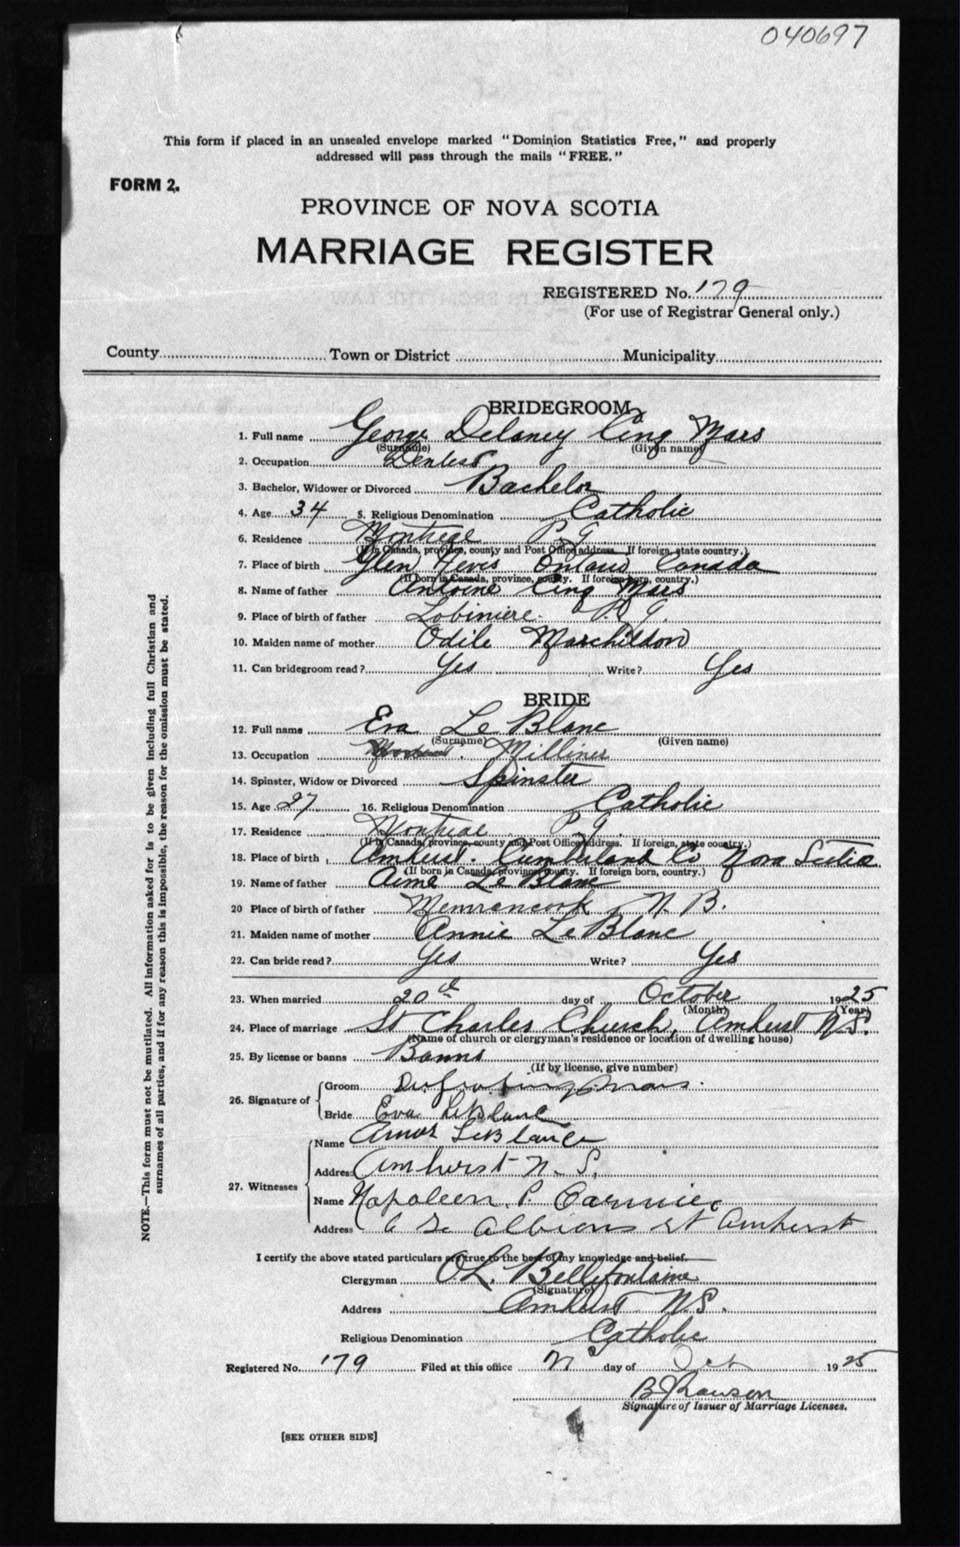 040697
This form if placed in an unsealed envelope marked "Dominion Statistics Free," and properly
addressed will pass through the mails "FREE."
FORM 2.
PROVINCE OF NOVA SCOTIA
MARRIAGE REGISTER
REGISTERED No. 179
(For use of Registrar General only.)
County Town or District Municipality
BRIDEGROOM
1. Full name George Delaney Cinq Mars
(Surname) (Given name)
2. Occupation Dentist
3. Bachelor, Widower or Divorced Bachelor
4. Age 34 5. Religious Denomination Catholic
6. Residence Montreal P Q
(If in Canada, province, county and Post Office address. If foreign, state country.)
7. Place of birth Glen Nevis Ontario Canada
(If born in Canada, province, county. If foreign born, country.)
8. Name of father Antoine Cinq Mars
9. Place of birth of father Lobiniere P. Q.
10. Maiden name of mother Odile Marchildon
11. Can bridegroom read? Yes Write? Yes
BRIDE
12. Full name Eva Le Blanc
(Surname) (Given name)
13. Occupation Milliner
14. Spinster, Widow or Divorced Spinster
15. Age 27 16. Religious Denomination Catholic
17. Residence Montreal P. Q.
(If in Canada, province, county and Post Office address. If foreign, state country.)
18. Place of birth Amherst. Cumberland Co Nova Scotia
(If born in Canada, province, county. If foreign born, country.)
19. Name of father Aimé Le Blanc
20 Place of birth of father Memramcook N. B.
21. Maiden name of mother Annie LeBlanc
22. Can bride read? Yes Write? Yes
23. When married 20th day of October 1925
(Month) (Year)
24. Place of marriage St Charles Church, Amherst N.S.
(Name of church or clergyman's residence or location of dwelling house)
25. By license or banns Banns
(If by license, give number)
26. Signature of Groom
Bride Eva LeBlanc
27. Witnesses Name Amos LeBlanc
Address Amherst N. S.
Name Napoleon P. Cormier
Address Albion St Amherst
I certify the above stated particulars are true to the best of my knowledge and belief.
Clergyman O.L. Bellefontaine
(Signature)
Address Amherst N.S.
Religious Denomination Catholic
Registered No. 179 Filed at this office day of Oct 1925
Signature of Issuer of Marriage Licenses.
[SEE OTHER SIDE]
NOTE.—This form must not be mutilated. All information asked for is to be given including full Christian and
surnames of all parties, and if for any reason this is impossible, the reason for the omission must be stated.